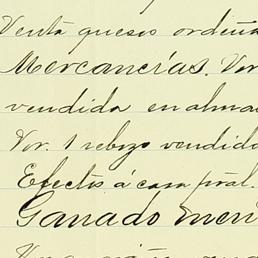 Venta quesos ordeña
Mercancías. Var
vendida en alma
Var. 1 rebozo vendido
Efectos á casa pral.
Ganado men
Una